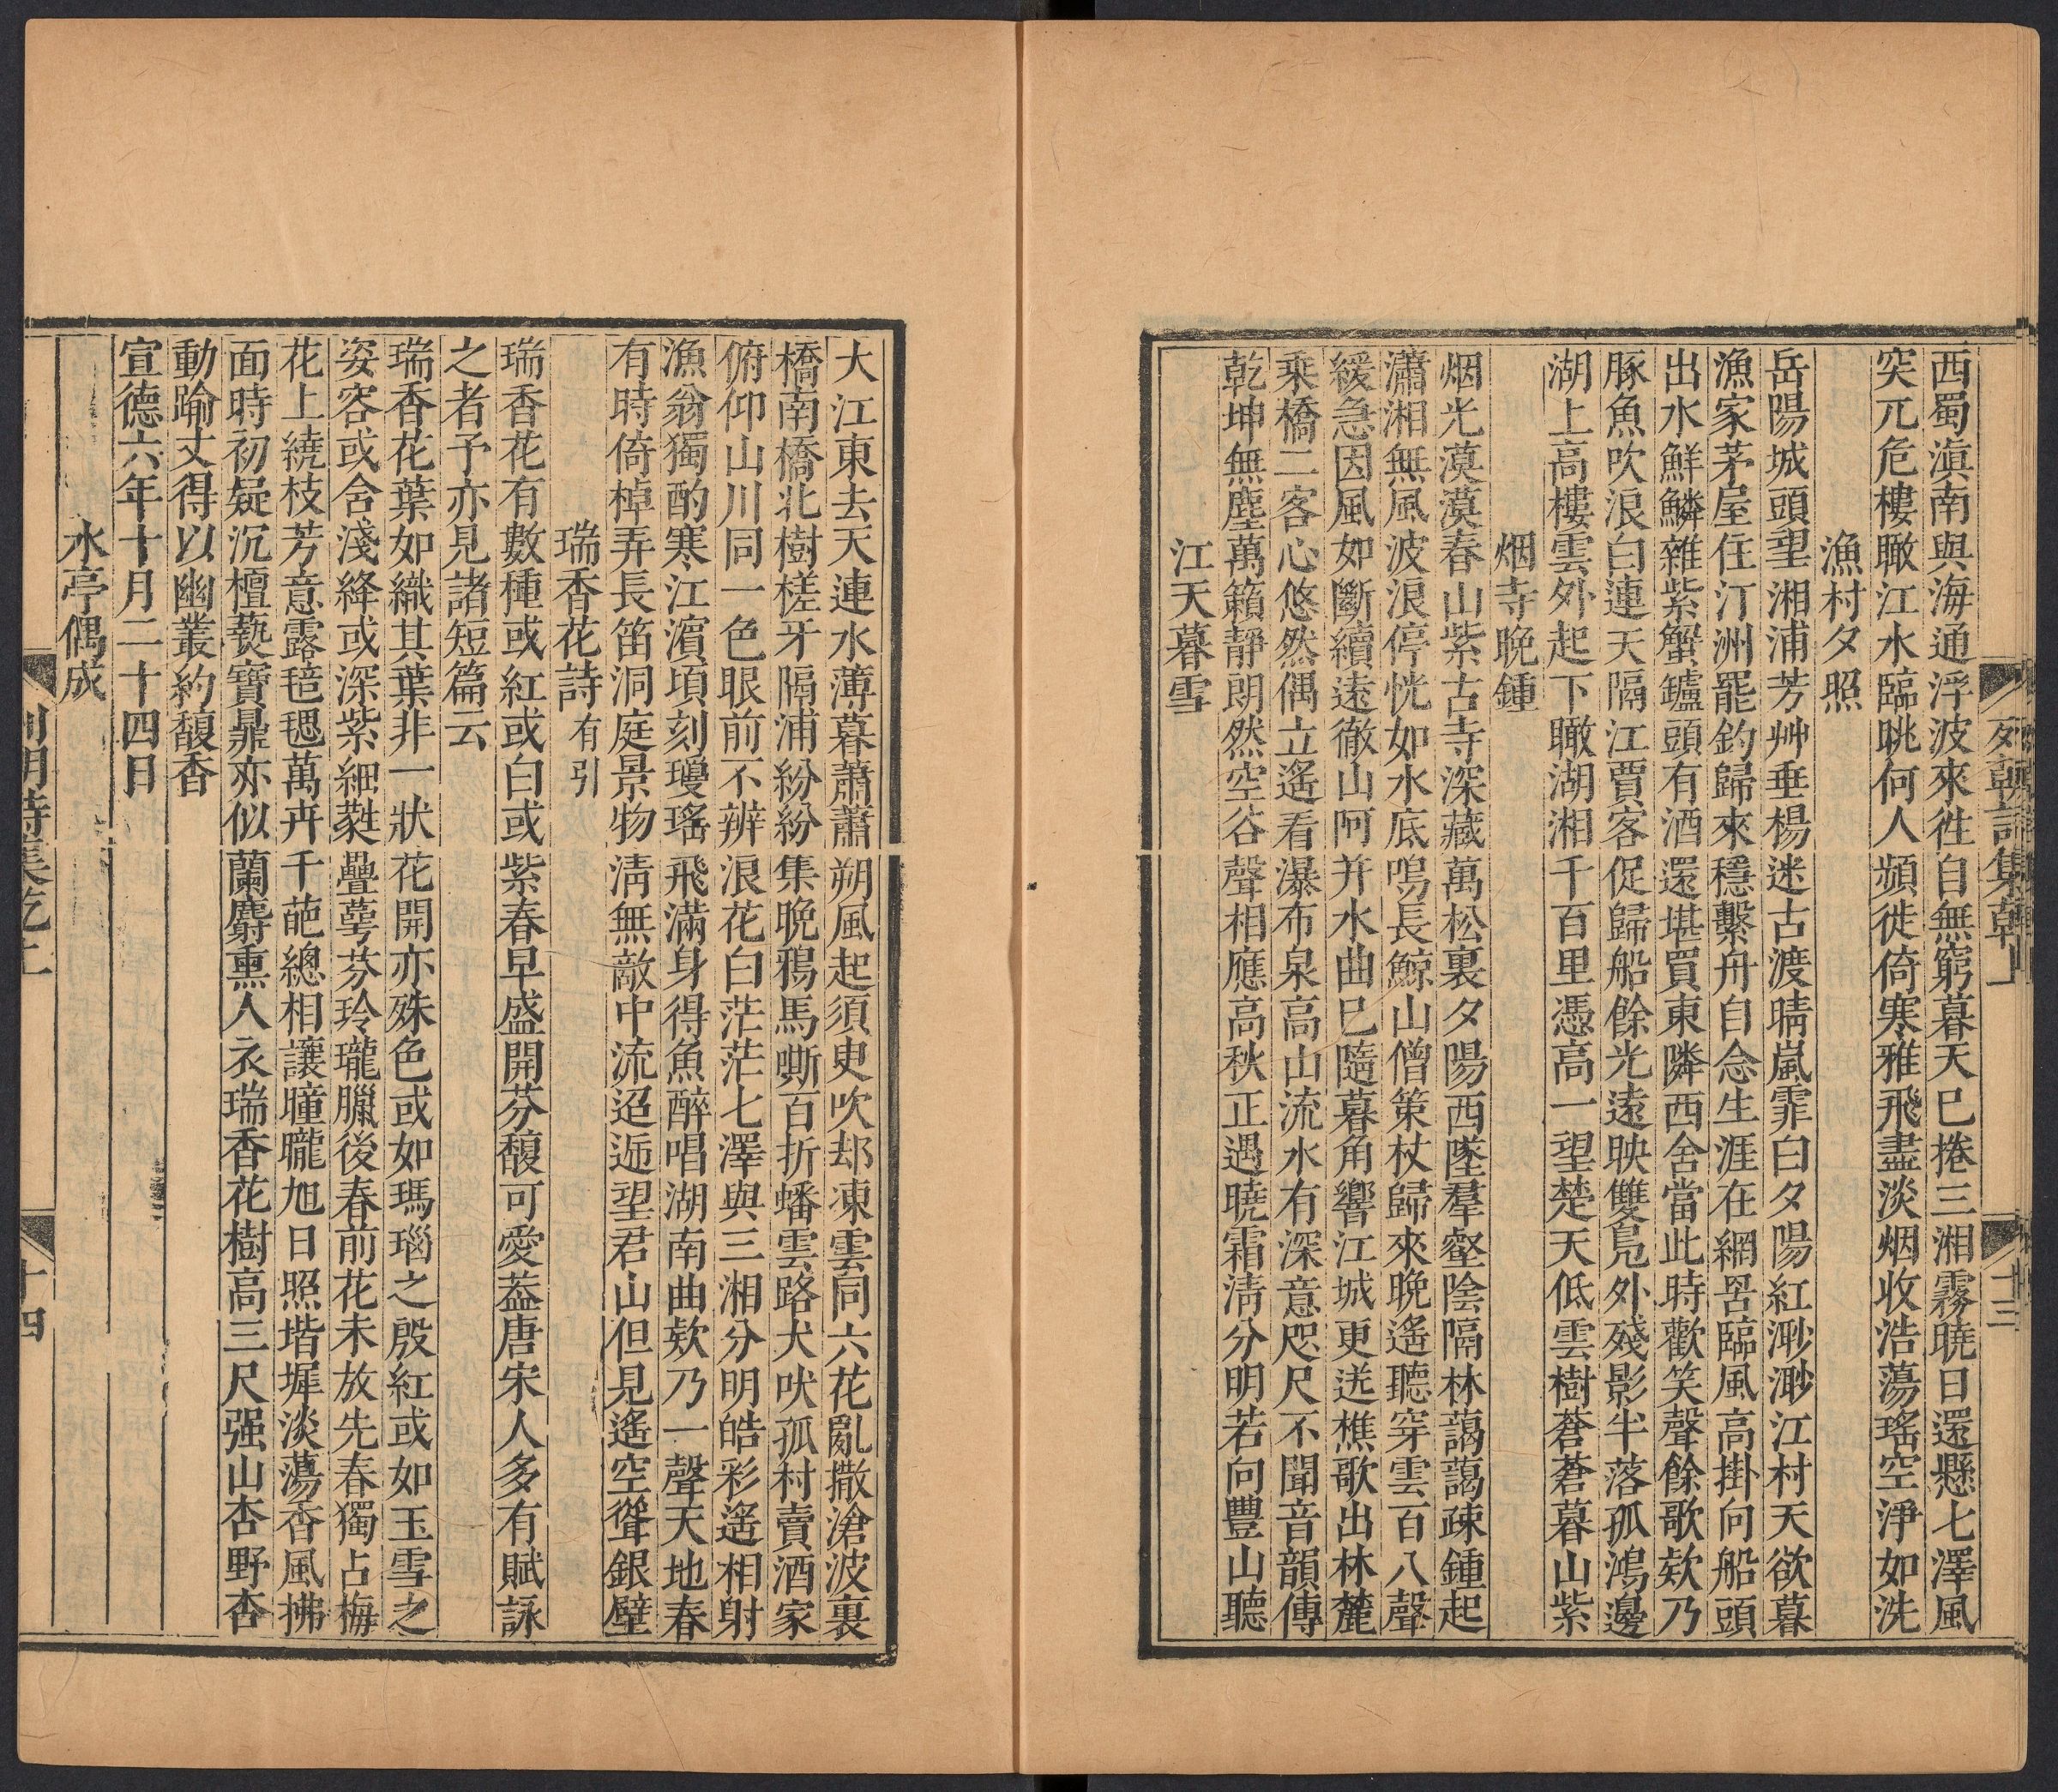 列朝詩集乾上
十三
西蜀滇南與海通浮波來徃自無窮暮天已捲三湘霧曉日還懸七澤風
突兀危樓瞰江水臨眺何人頻徙倚寒雅飛盡淡烟收浩蕩瑤空淨如洗
漁村夕照
岳陽城頭望湘浦芳艸垂楊迷古渡晴嵐霏白夕陽紅渺渺江村天欲暮
漁家茅屋住汀洲罷釣歸來穩繫舟自念生涯在網罟臨風高掛向船頭
出水鮮鱗雜紫蟹鑪頭有酒還堪買東隣西舍當此時歡笑聲餘歌欸乃
豚魚吹浪白連天隔江賈客促歸船餘光遠映雙鳧外殘影半落孤鴻邊
湖上高樓雲外起下瞰湖湘千百里憑高一望楚天低雲樹蒼蒼暮山紫
烟寺晚鍾
烟光漠漠春山紫古寺深藏萬松裏夕陽西墜羣壑陰隔林藹藹疎鍾起
瀟湘無風波浪停恍如水底鳴長鯨山僧策杖歸來晚遙聽穿雲百八聲
緩急因風如斷續遠徹山阿并水曲已隨暮角響江城更送樵歌出林麓
乗橋二客心悠然偶立遙看瀑布泉高山流水有深意咫尺不聞音韻傳
乾坤無塵萬籟靜朗然空谷聲相應高秋正遇曉霜清分明若向豐山聽
江天暮雪
大江東去天連水薄暮蕭蕭朔風起須臾吹却凍雲同六花亂撒滄波裏
橋南橋北樹槎牙隔浦紛紛集晚鴉馬嘶百折蟠雲路犬吠孤村賣酒家
俯仰山川同一色眼前不辨浪花白茫茫七澤與三湘分明皓彩遙相射
漁翁獨酌寒江濵項刻瓊瑤飛滿身得魚醉唱湖南曲欸乃一聲天地春
有時倚棹弄長笛洞庭景物清無敵中流迢逓望君山但見遙空聳銀壁
瑞香花詩有引
瑞香花有數種或紅或白或紫春早盛開芬馥可愛葢唐宋人多有賦詠
之者予亦見諸短篇云
瑞香花葉如織其葉非一狀花開亦殊色或如瑪瑙之殷紅或如玉雪之
姿容或含淺絳或深紫細蘂疊萼芬玲瓏臘後春前花未放先春獨占梅
花上繞枝芳意露毰毸萬卉千葩總相讓曈曨旭日照堦墀淡蕩香風拂
面時初疑沉檀爇寶鼎亦似蘭麝熏人衣瑞香花樹高三尺强山杏野杏
動踰丈得以幽叢約馥香
宣德六年十月二十四日
水亭偶成
列朝詩集乾上
十四